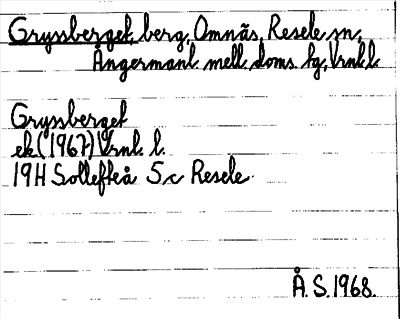 Gryssberget, berg, Omnäs, Resele sn,
Ångermanl. mell. doms. hg, Vrnl. l.
Gryssberget
ek. (1967) Vrnl. l.
19H Sollefteå 5c Resele
Å. S. 1968.